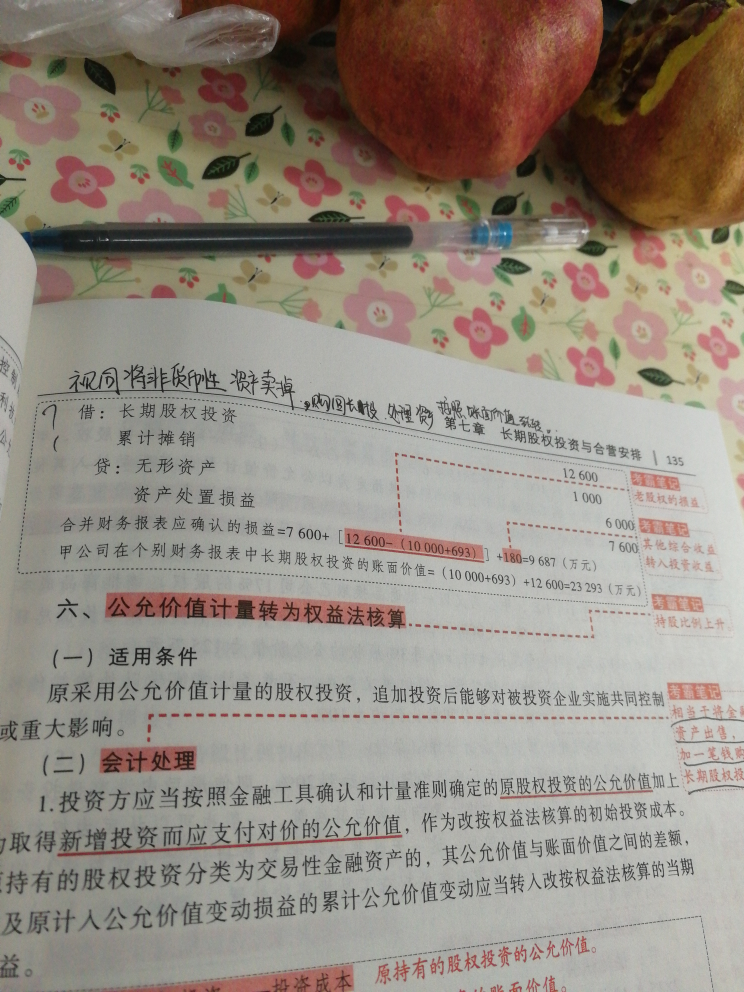 视同将非货币性资产卖掉
第七章 长期股权投资与合营安排 | 135
借：长期股权投资 12 600
累计摊销 1 000
贷：无形资产 6 000
资产处置损益 7 600
合并财务报表应确认的损益=7 600+［12 600-（10 000+693）］+180=9 687（万元）
甲公司在个别财务报表中长期股权投资的账面价值=（10 000+693）+12 600=23 293（万元）
考霸笔记
老股权的损益
考霸笔记
其他综合收益
转入投资收益
六、公允价值计量转为权益法核算
考霸笔记
持股比例上升
（一）适用条件
原采用公允价值计量的股权投资，追加投资后能够对被投资企业实施共同控制
或重大影响。
考霸笔记
相当于将金
资产出售，
加一笔钱购
长期股权投
（二）会计处理
1.投资方应当按照金融工具确认和计量准则确定的原股权投资的公允价值加上
取得新增投资而应支付对价的公允价值，作为改按权益法核算的初始投资成本。
持有的股权投资分类为交易性金融资产的，其公允价值与账面价值之间的差额，
及原计入公允价值变动损益的累计公允价值变动应当转入改按权益法核算的当期
益。
投资成本
原持有的股权投资的公允价值。
账面价值。